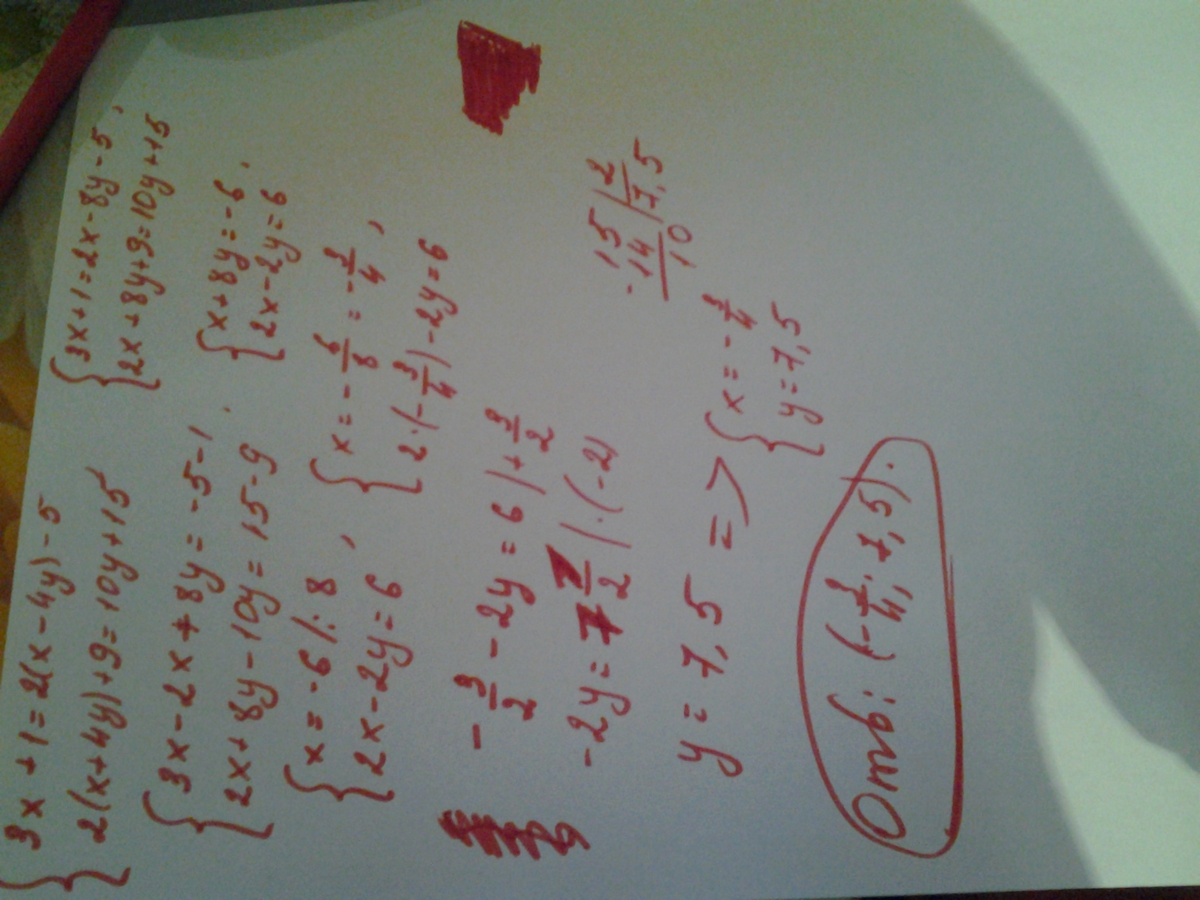 {3x+1=2(x-4y)-5
2(x+4y)+9=10y+15,
{3x+1=2x-8y-5,
2x+8y+9=10y+15
{3x-2x+8y=-5-1
2x+8y-10y=15-9.
{x+8y=-6,
2x-2y=6
{x=-6 |:8
2x-2y=6 ,
{x=-6/8=-3/4,
2·(-3/4)-2y=6
-3/2-2y=6 |+3/2
-2y=7 1/2 |·(-2)
y=7,5 => {x=-3/4
y=7,5
-15|2
14|7,5
10
Ответ: (-3/4; 7,5).